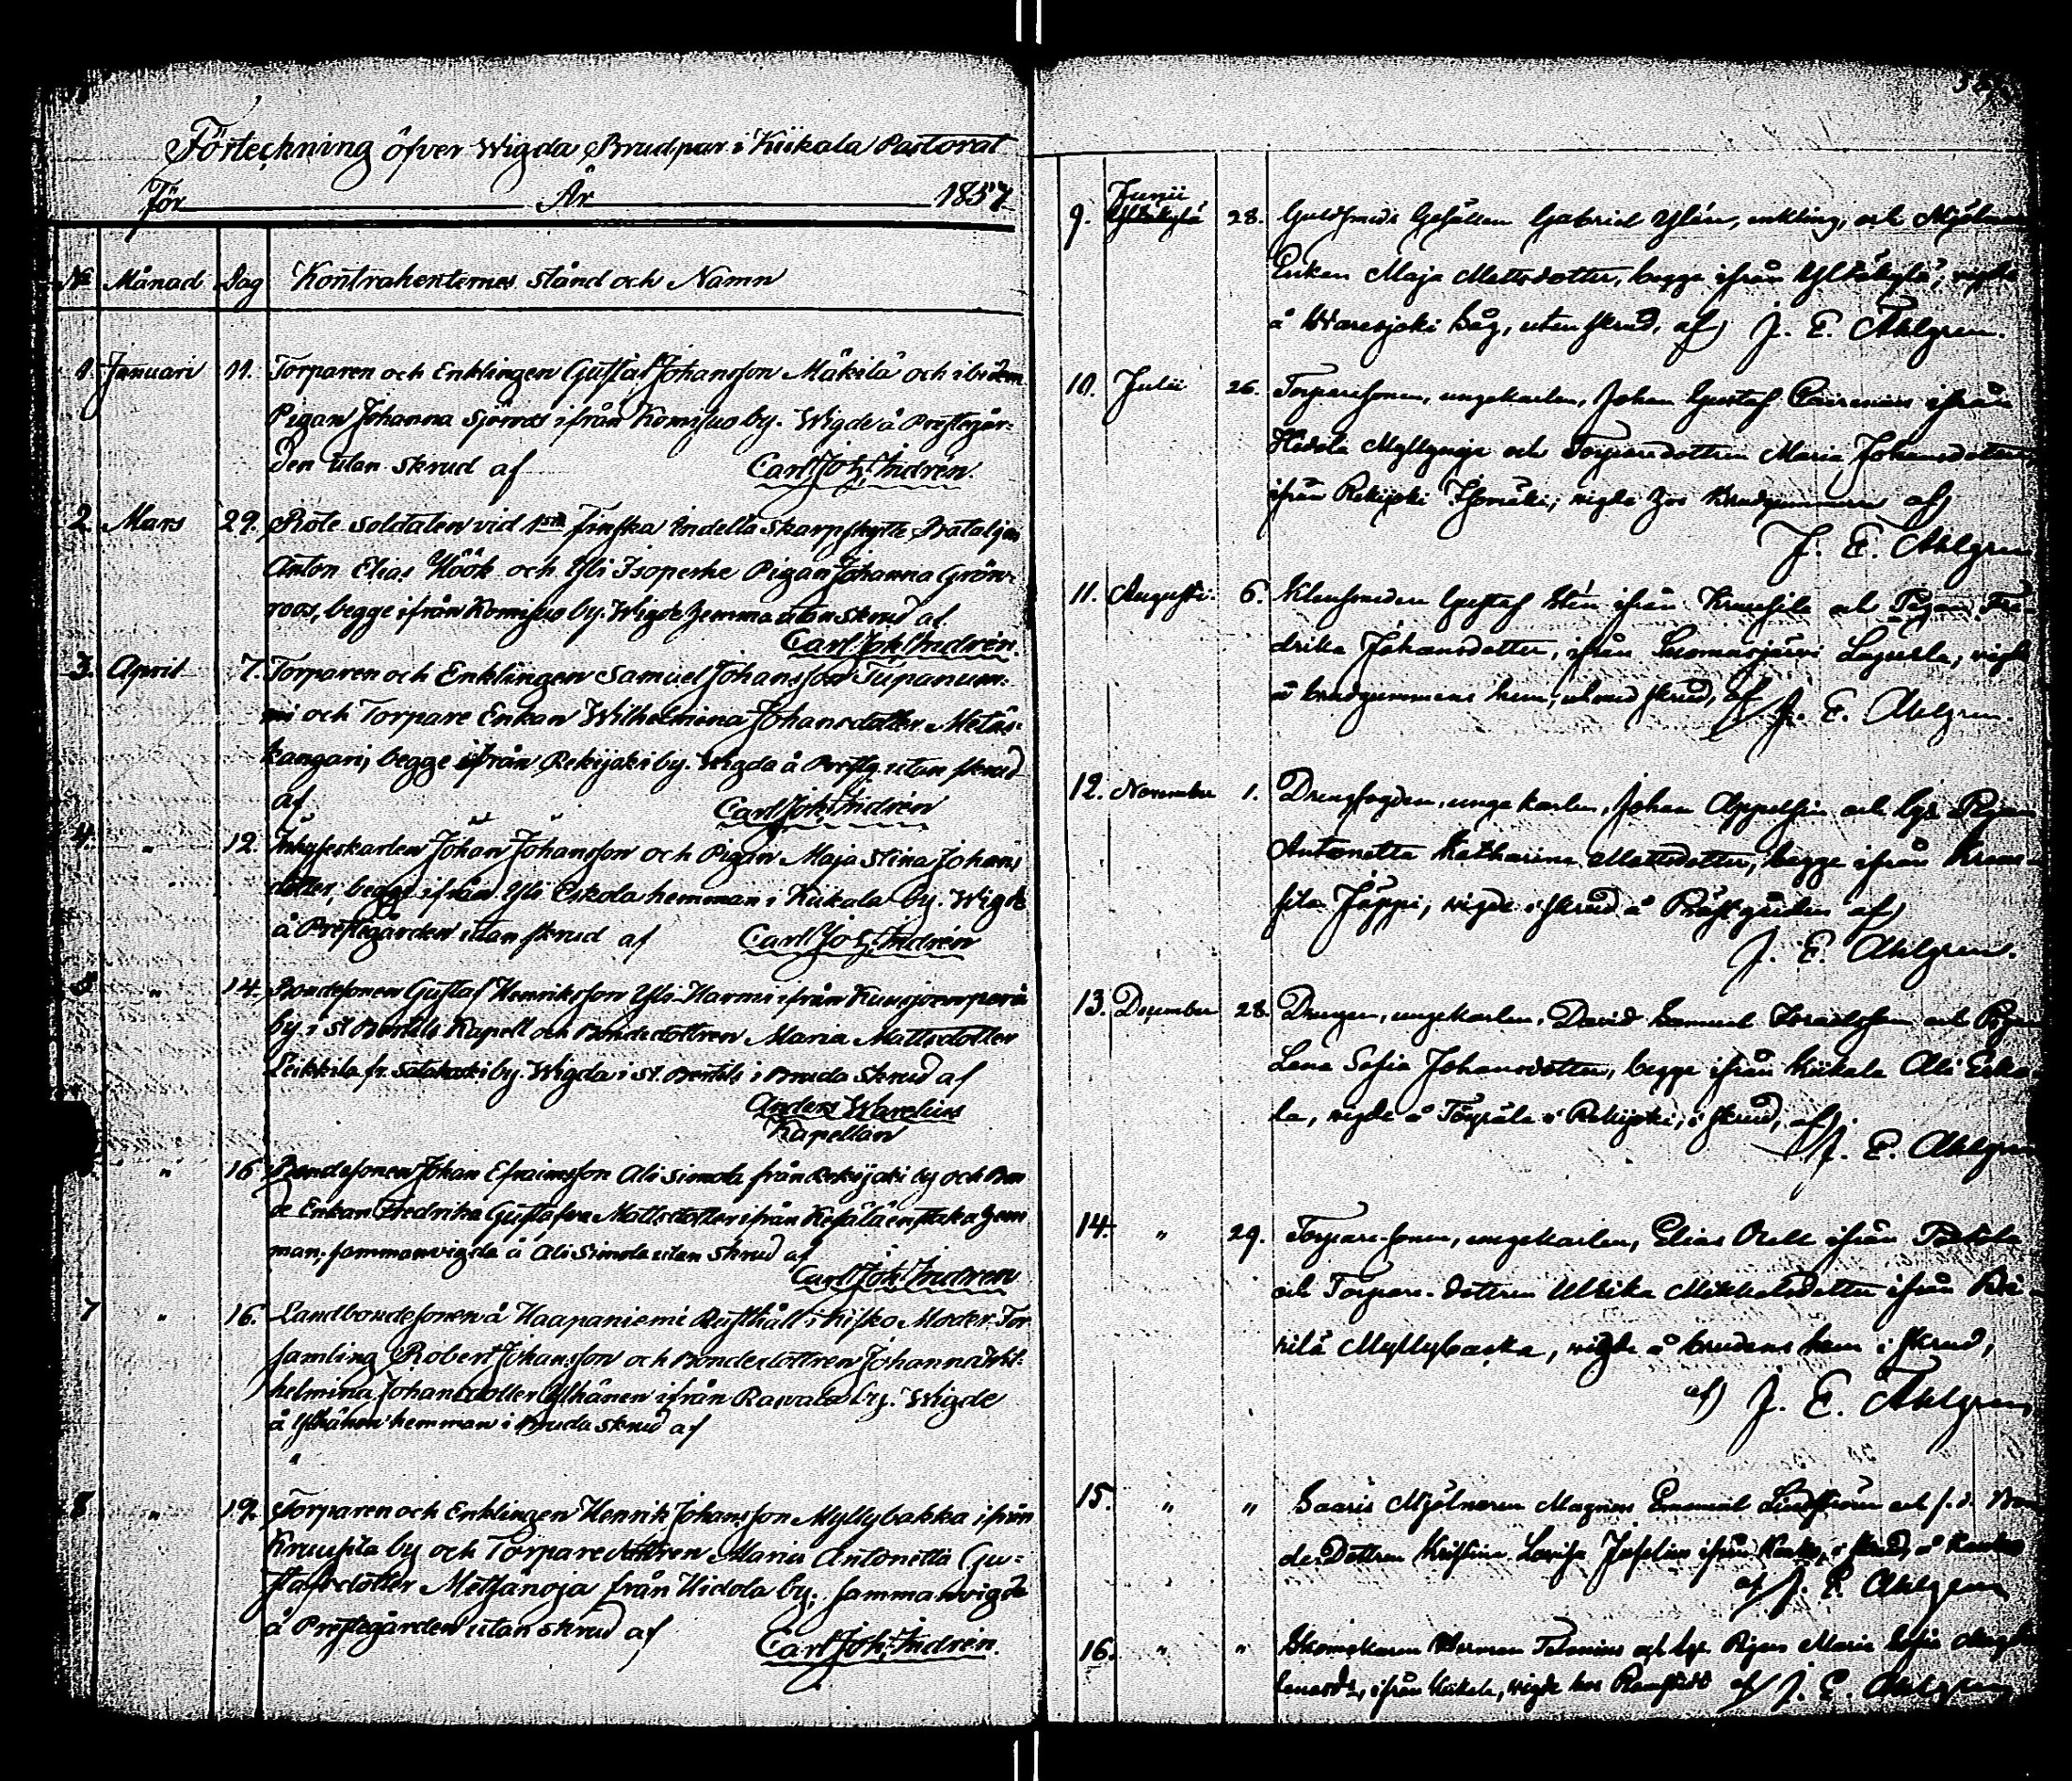 Förteckning öfver Wigda Brudpar i Kiikala Pastorat
För År 1857
No Månad Dag Kontrahenternes stånd och Namn
1. Januari 11. Torparen och Enklingen Gustaf Johansson Mäkilä och ibidem
Pigan Johanna Sjöroos ifrån Komisuo by. Wigde å Prestegår-
den utan skrud af Carl Joh. Indrén.
2 Mars 29. Rote soldaten vid 1sta Finska Indelta Skarpskytte Bataljon
Anton Elias Höök och Yli Isoperhe Pigan Johanna Grön-
roos, begge ifrån Komisuo by. Wigde hemma utan skrud af
Carl Joh. Indrén.
3. April 7. Torparen och Enklingen Samuel Johansson Tupanum-
mi och Torpare Enkan Wilhelmina Johansdotter Metäs-
kangari, begge ifrån Rekijoki by. Wigda å Prestg. utan skrud
af Carl Joh. Indrén
4. " 12. Inhyseskarlen Johan Johansson och Pigan Maja Stina Johans
dotter, begge ifrån Yli Eskola hemman i Kiikala by. Wigde
å Prestegården utan skrud af Carl Joh. Indrén
5 " 14. Bondesonen Gustaf Henriksson Yli-Harmi ifrån Kuusjoenperä
by i St Bertils Kapell och Bondedottren Maria Mattsdotter
Leikkilä fr. by. Wigda i St. Bertils i Bruda skrud af
Anders Warelius
Kapellan
" 16 Bondesonen Johan Efraimsson Ali Simola från Rekijoki by och Bon
de Enkan Fredrika Gustafva Mattsdotter ifrån enstaka hem
man, sammanvigda å Ali Simola utan skrud af
Carl Joh. Indrén
7 " 16. Landbondesonen å Haapaniemi Rusthåll i Kisko Moder För
samling Robert Johansson och Bondedottren Johanna Wil-
helmina Johansdotter Ylhänen ifrån by. Wigde
å Ylhänen hemman i Bruda skrud af
"
8 " 19. Torparen och Enklingen Henrik Johansson Myllybakka ifrån
Kruusila by och Torparedottren Maria Antonetta Gu-
stafsdotter Metsänoja från Hidola by, sammanvigde
å Prestegården utan skrud af Carl Joh. Indrén.
9. Junii 28. Guldsmeds Gesällen Gabriel Ylén, enkling, och Mjölnare
Enkan Maja Mattsdotter, begge ifrån Yltäkylä, vigde
å Waresjoki utan skrud, af J. E. Ahlgren.
10. Julii 26. Torparesonen, ungekarlen, Johan Gustaf ifrån
Hidola Myllynoja och Torparedottren Maria Johansdotter
ifrån Rekijoki vigde hos Brudgummen af
J. E. Ahlgren
11. Augusti. 6. Klensmeden Gustaf Stén ifrån Kruusila och Pigan Fre-
drika Johansdotter, ifrån Suomusjärvi Laperla, vigde
å brudgummens hem, utan skrud, af J. E. Ahlgren.
12. November 1. Drengfogden, unge karlen, Johan och Pigan
Antonetta Katharina Mattsdotter, begge ifrån Kruu-
sila Jäppi, vigde i skrud å Prästgården af
J. E. Ahlgren.
13. December 28. Drengen, ungekarlen, David Samuel Israelsson och Pigan
Lena Sofia Johansdotter, begge ifrån Kiikala Ali Esko-
la, vigde å i Rekijoki, i skrud, af
J. E. Ahlgren
14. " 29. Torpare-sonen, ungekarlen, Elias ifrån
och Torpare-dottren Ulrika Mikkelsdotter ifrån
Myllybacka, vigde å brudens hem i skrud,
af J. E. Ahlgren
15. " " Saaris Mjölnaren Magnus Emanuel Lindström och f. d. Bon
de Dottren Kristina Lovisa ifrån i skrud, å
af J. E. Ahlgren
16. " " Skomakaren Herman och Pigan Maria Sofia
ifrån Kiikala, vigde hos af J. E. Ahlgren